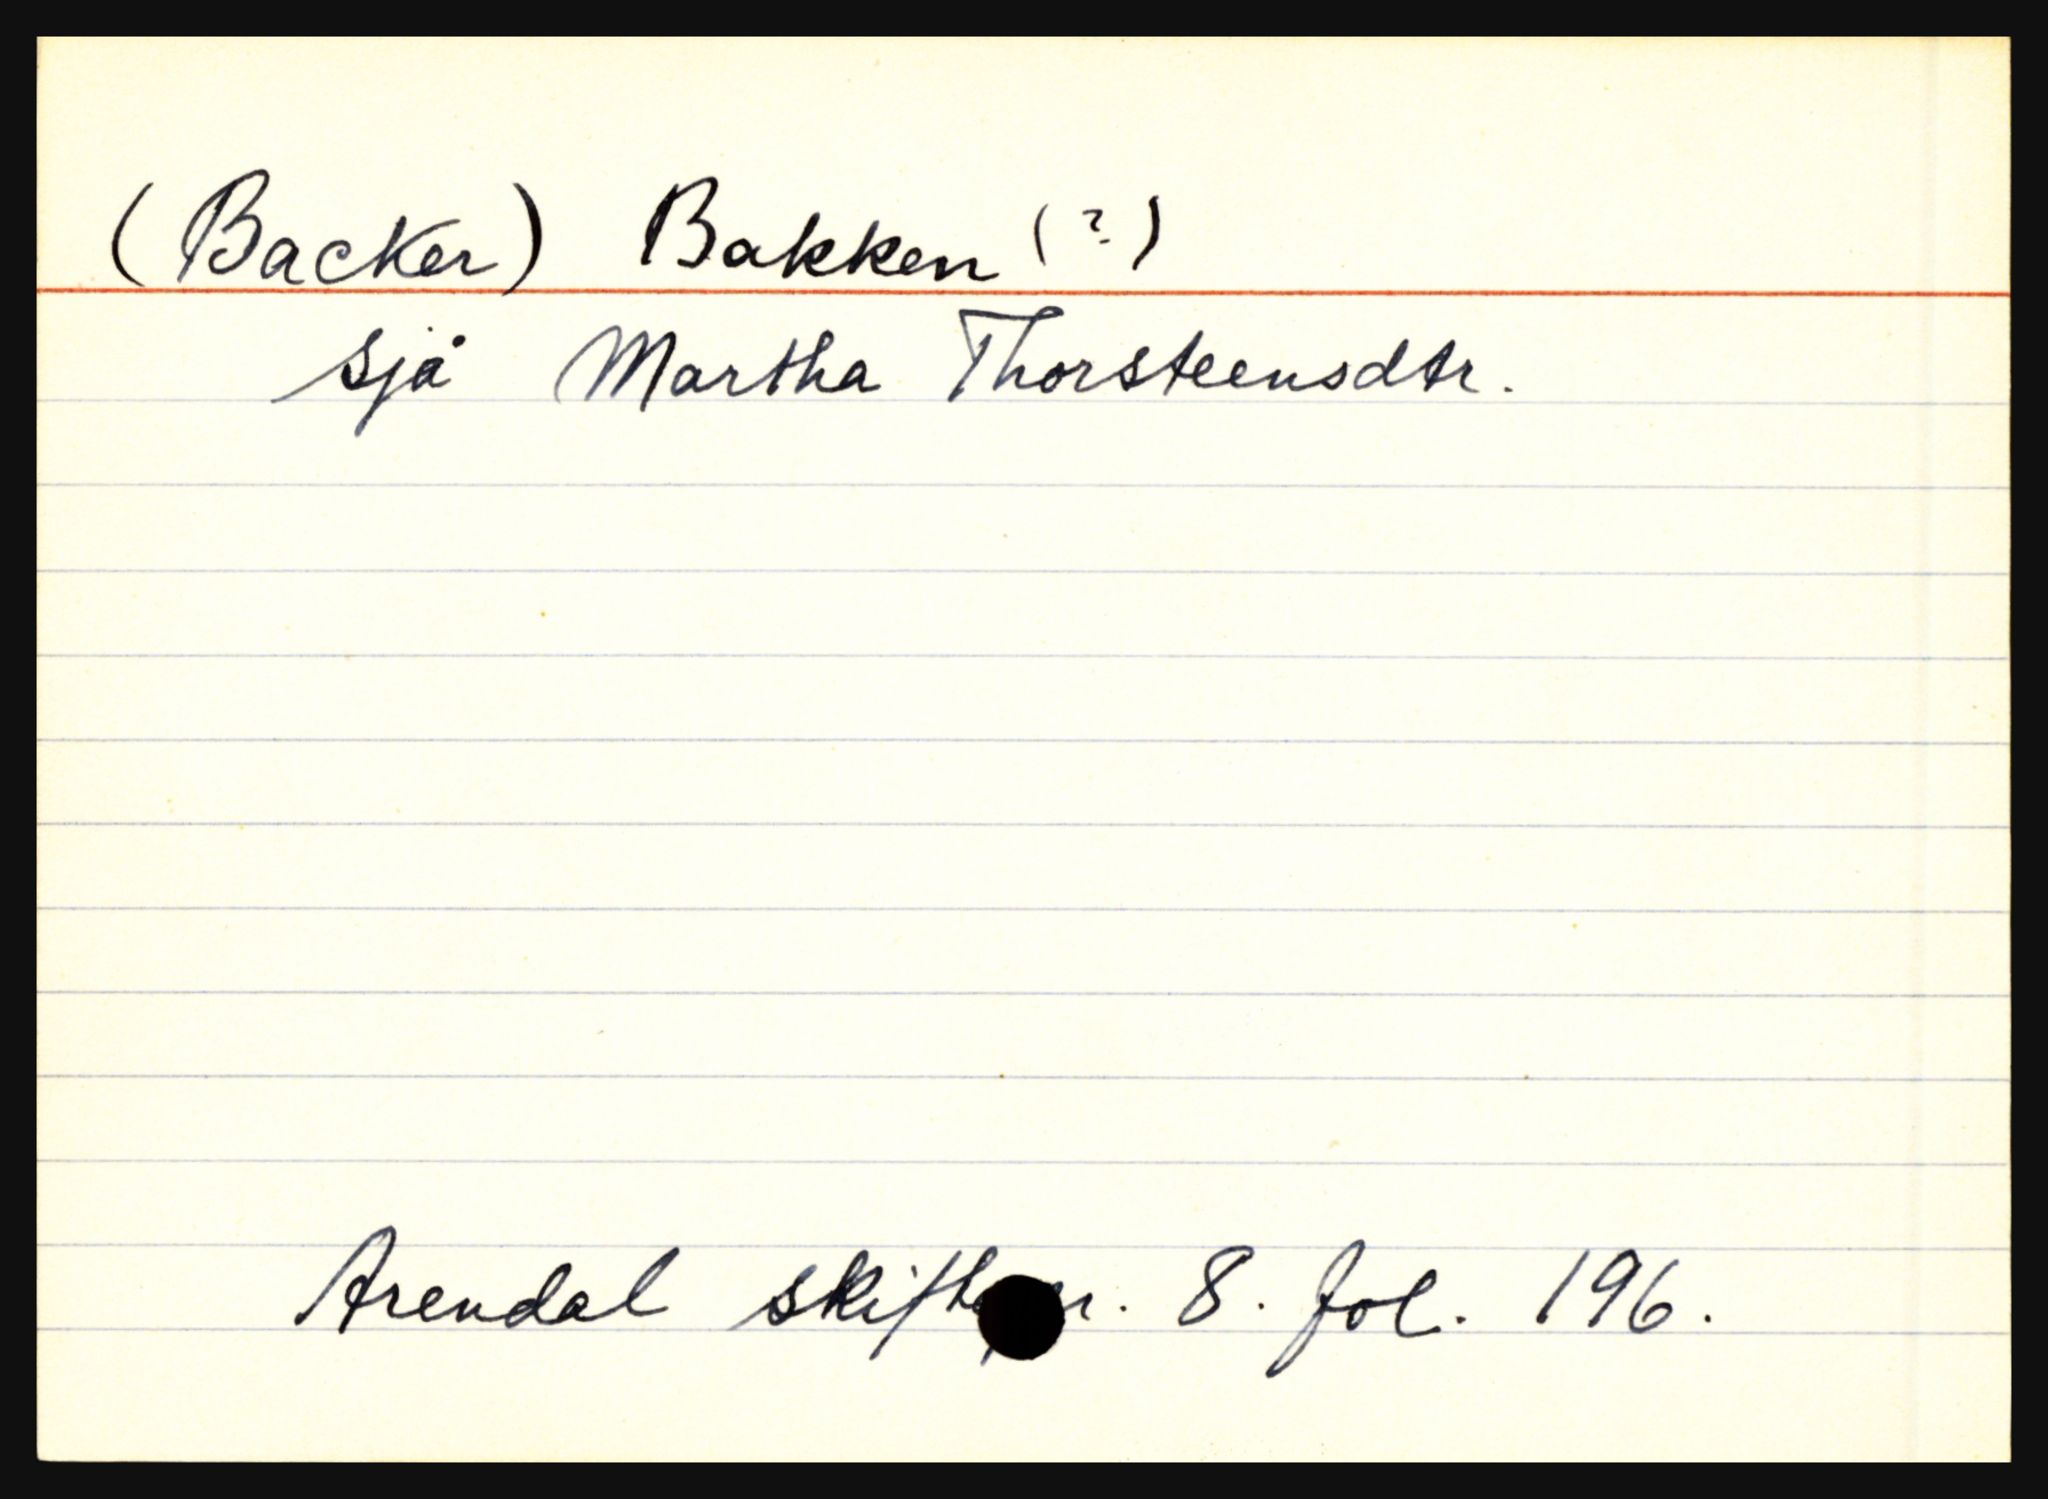 (Backer) Bakken (?)
sjå Martha Thorsteensdtr.
Arendal 8. fol. 196.